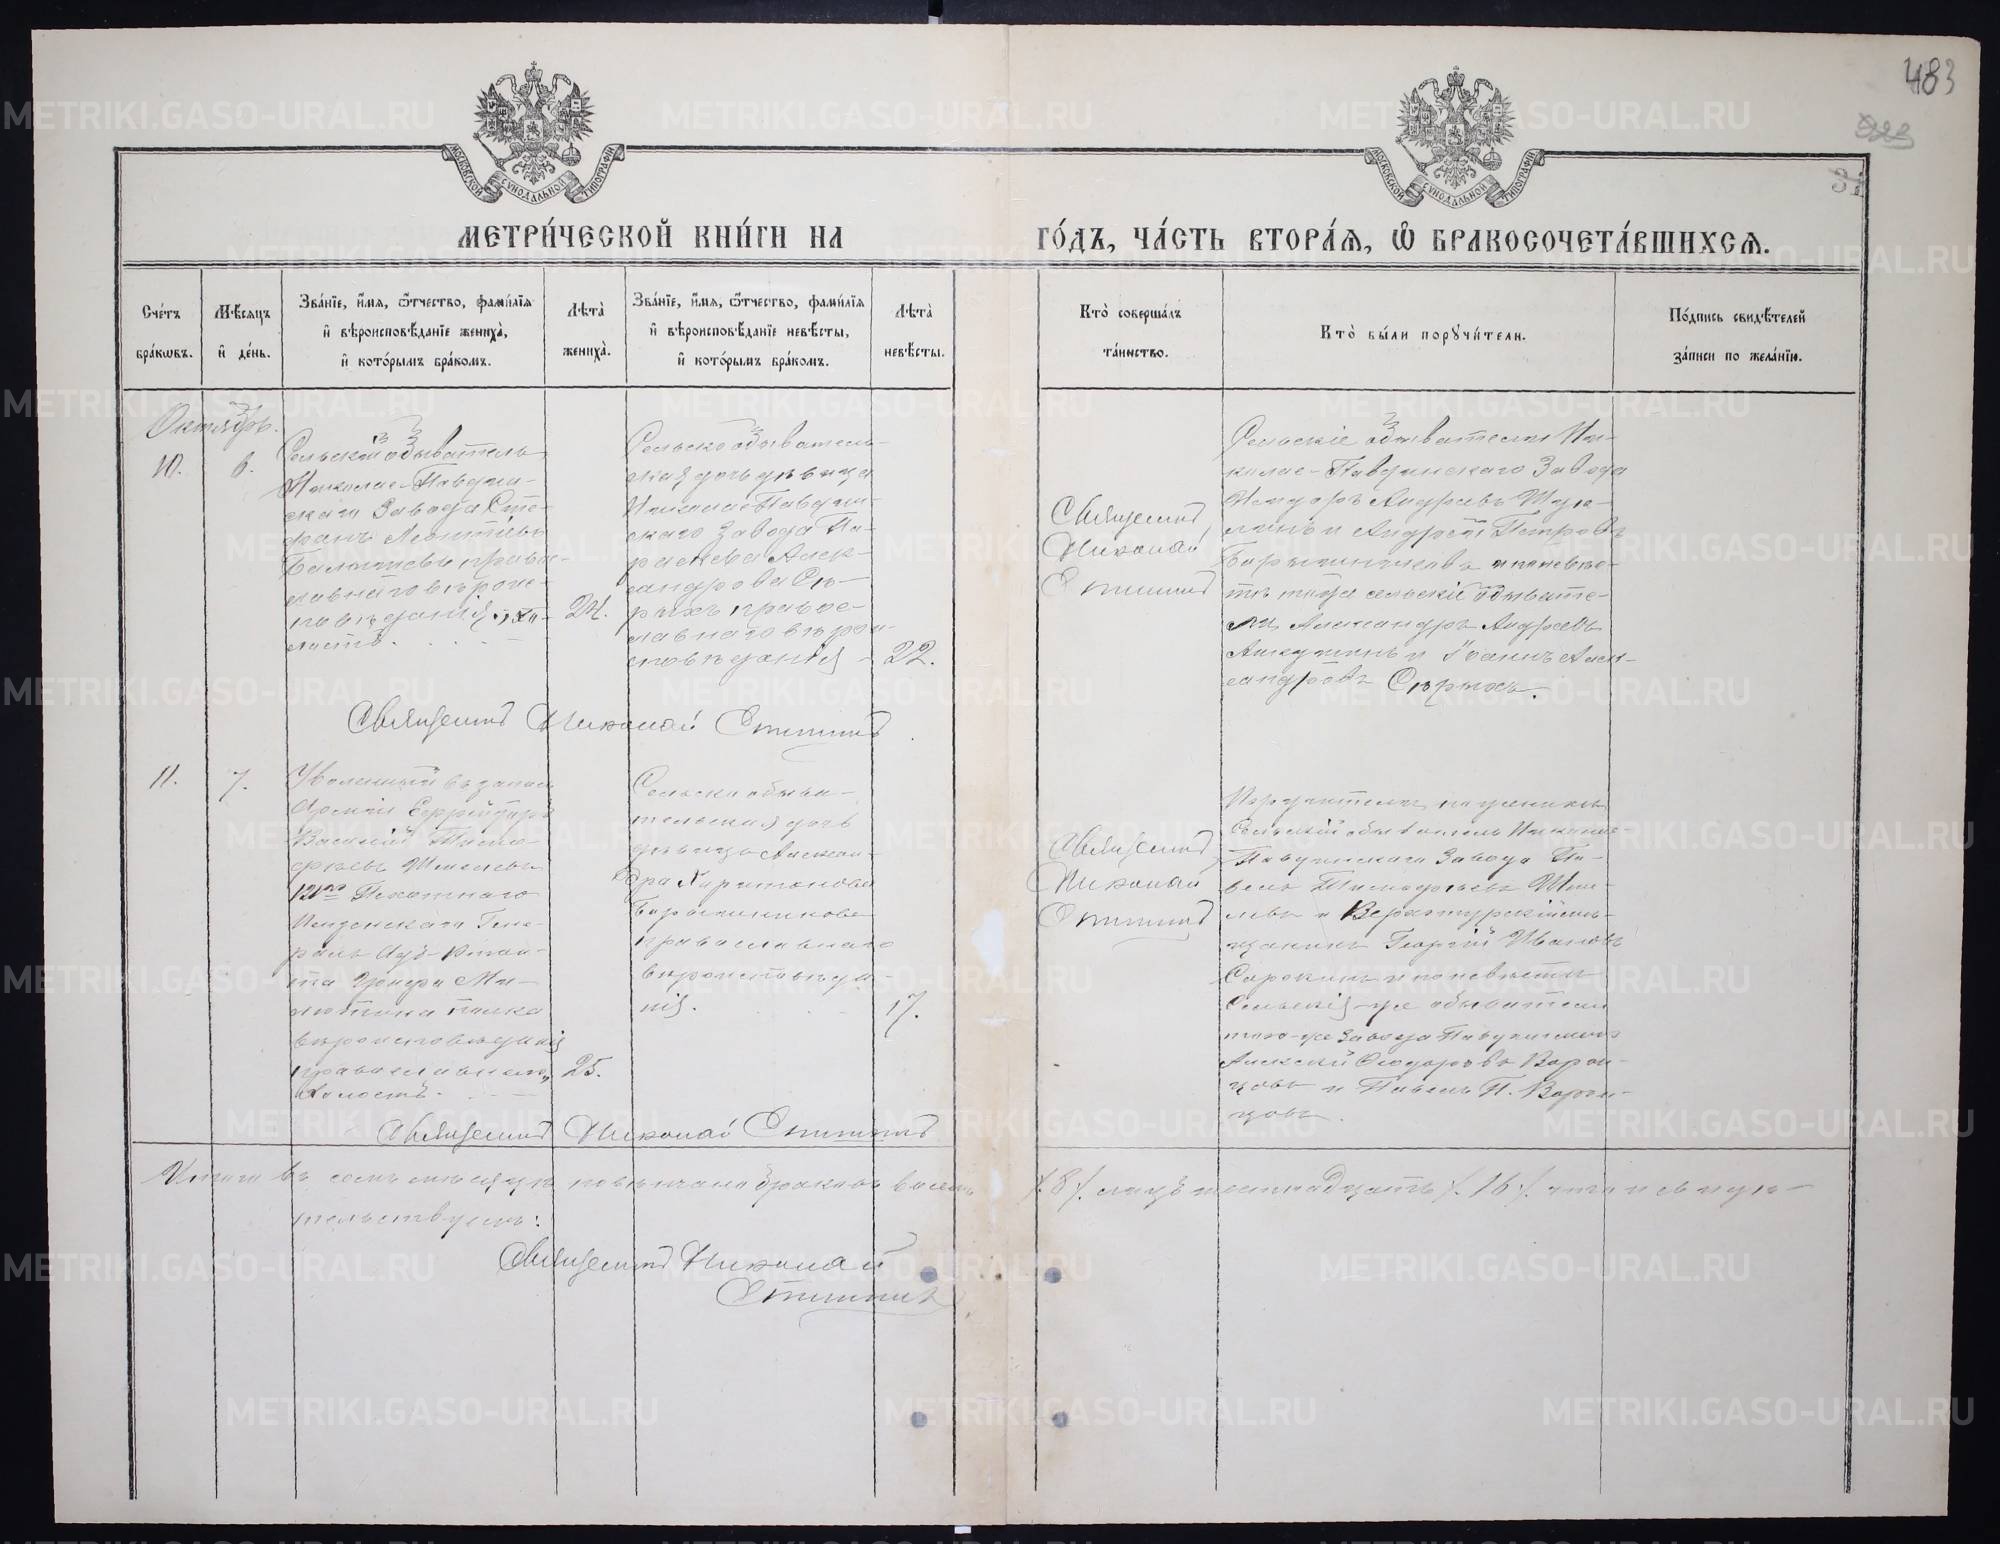 483
МОСКОВСКОЙ СУНОДАЛЬНОЙ ТИПОГРАФІИ
МОСКОВСКОЙ СУНОДАЛЬНОЙ ТИПОГРАФІИ
МЕТРИ́ЧЕСКОЙ КНИ́ГИ НА
ГО́ДЪ, ЧА́СТЬ ВТОРА́Ѧ, Ѡ҆ БРАКОСОЧЕТА́ВШИХСѦ.
Сче́тъ бра́кѡвъ.
Мѣ́сѧцъ и҆ де́нь.
Зва́нїе, и҆́мѧ, ѻ҆́тчество, фами́лїѧ
и҆ вѣроисповѣ́данїе жениха̀,
и҆ кото́рымъ бра́комъ.
Лѣта̀ жениха̀.
Зва́нїе, и҆́мѧ, ѻ҆́тчество, фами́лїѧ
и҆ вѣроисповѣ́данїе невѣ́сты,
и҆ кото́рымъ бра́комъ.
Лѣта̀ невѣ́сты.
Кто̀ соверша́лъ та́инство.
Кто̀ бы́ли порꙋчи́тели.
По́дпись свидѣ́телей
за́писи по жела́нїю.
Октябрь.
10.
6.
Сельскій обыватель
Николае-Павдин-
скаго Завода Сте-
фанъ Леонтіевъ
православ-
наго вѣроис-
повѣданія, хо-
лостъ.
24.
Сельскообыватель-
ская дочь дѣвица
Николае-Павдин-
скаго Завода Па-
раскева Алек-
сандрова Сѣ-
рыхъ правос-
лавнаго вѣрои-
сповѣданія
22.
Священникъ
Николай
Сельскіе обыватели Ни-
колае-Павдинскаго Завода
Андреевъ
и Андрей Петровъ
и по невѣс-
тѣ тоже сельскіе обывате-
ли Александръ Андреевъ
и Іоаннъ Алек-
сандровъ Сѣрыхъ.
Священникъ Николай
11.
7.
Уволенный въ запасъ
Арміи Ефрейторъ
Василій Тимо-
феевъ
121го Пѣхотнаго
Пензенскаго Гене-
ралъ Адъютан-
та Графа Ми-
лютина полка
вѣроисповѣданія
православнаго,
Холостъ.
25.
Сельско обыва-
тельская дочь
дѣвица Алексан-
дра Харитонова
Барышникова
православнаго
вѣроисповѣда-
нія.
17.
Священникъ
Николай
Поручители по женихѣ
Сельскій обыватель Николае-
Павдинскаго Завода Па-
велъ Тимофеевъ
и Верхотурскій мѣ-
щанинъ Георгій Ивановъ
Сорокинъ и по невѣстѣ
Сельскія-же обыватели
того-же Завода Павдинскаго
Алексѣй Ѳедоровъ Ворон-
цовъ и Павелъ П. Ворон-
цовъ.
Священникъ Николай
Итого въ семъ мѣсяцѣ повѣнчано браковъ восемь
/.8/. лицъ шестнадцать /.16/. что и свидѣ-
тельствуемъ:
Священникъ Николай
METRIKI.GASO-URAL.RU